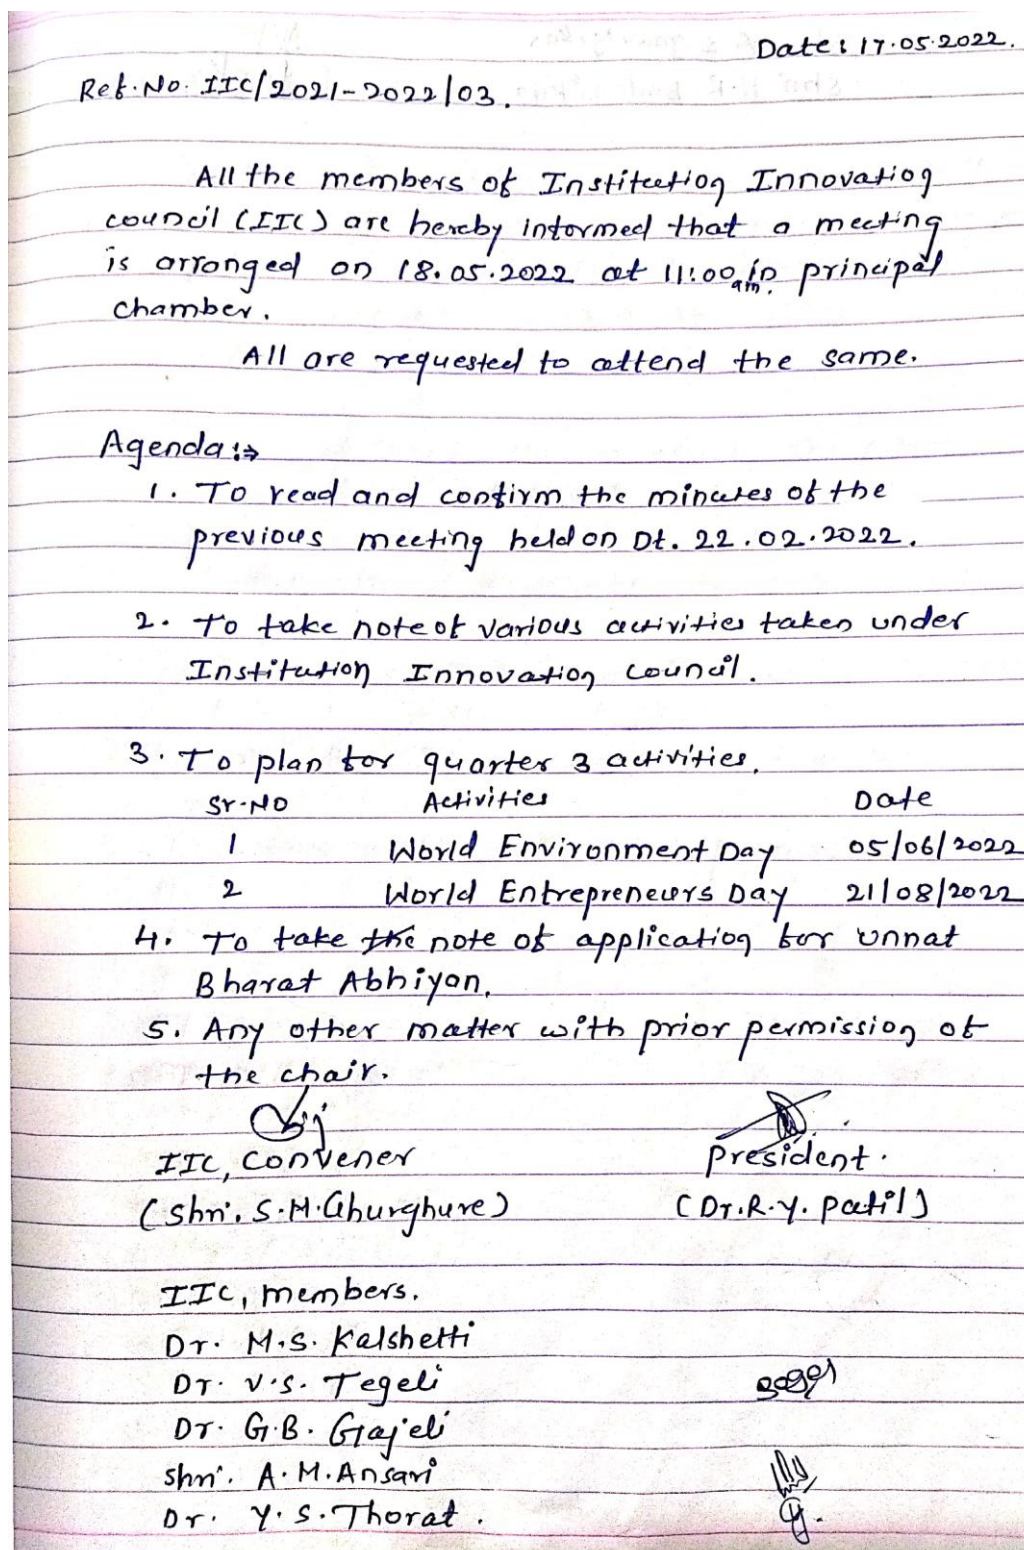 Date: 17.05.2022.
Ref. No. IIC/2021-2022/03.
All the members of Institution Innovation
council (IIC) are hereby informed that a meeting
is arranged on 18.05.2022 at 11:00 am. in principal
chamber.
All are requested to attend the same.
Agenda:⇒
1. To read and confirm the minutes of the
previous meeting held on Dt. 22.02.2022.
2. To take note of various activities taken under
Institution Innovation Council.
3. To plan for quarter 3 activities.
Sr-No Activities Date
1 World Environment Day 05/06/2022
2 World Entrepreneurs Day 21/08/2022
4. To take the note of application for Unnat
Bharat Abhiyan.
5. Any other matter with prior permission of
the chair.
IIC, Convener President.
(Shri. S.M. Ghurghure) (Dr. R.Y. Patil)
IIC, members.
Dr. M.S. Kalshetti
Dr. V.S. Tegeli
Dr. G.B. Gajeli
Shri. A.M. Ansari
Dr. Y.S. Thorat.